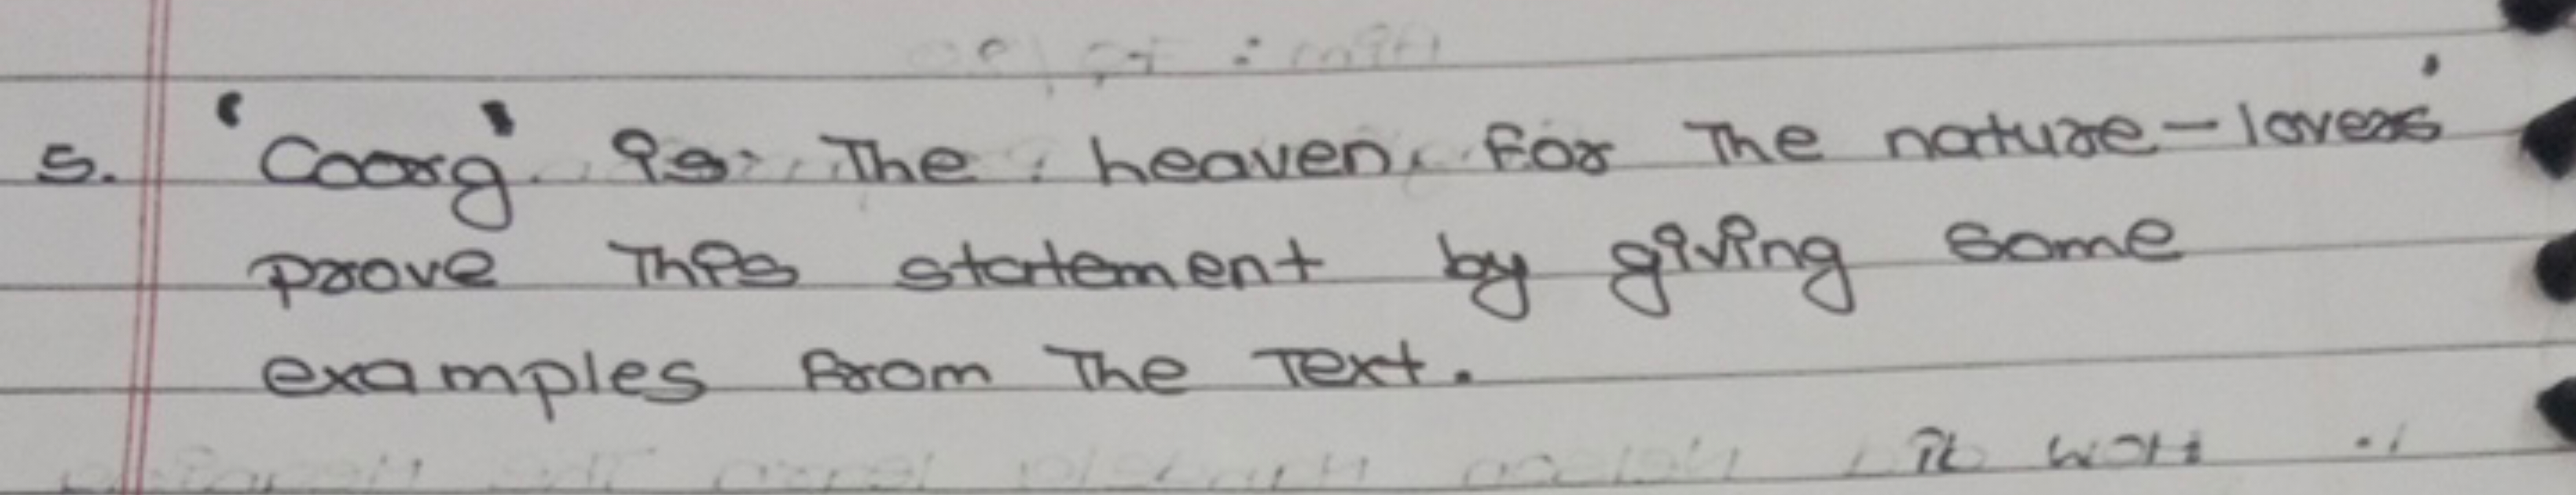 5. 'Coorg' is the heaven for the nature-lovers'
prove this statement by giving some
examples from the text.